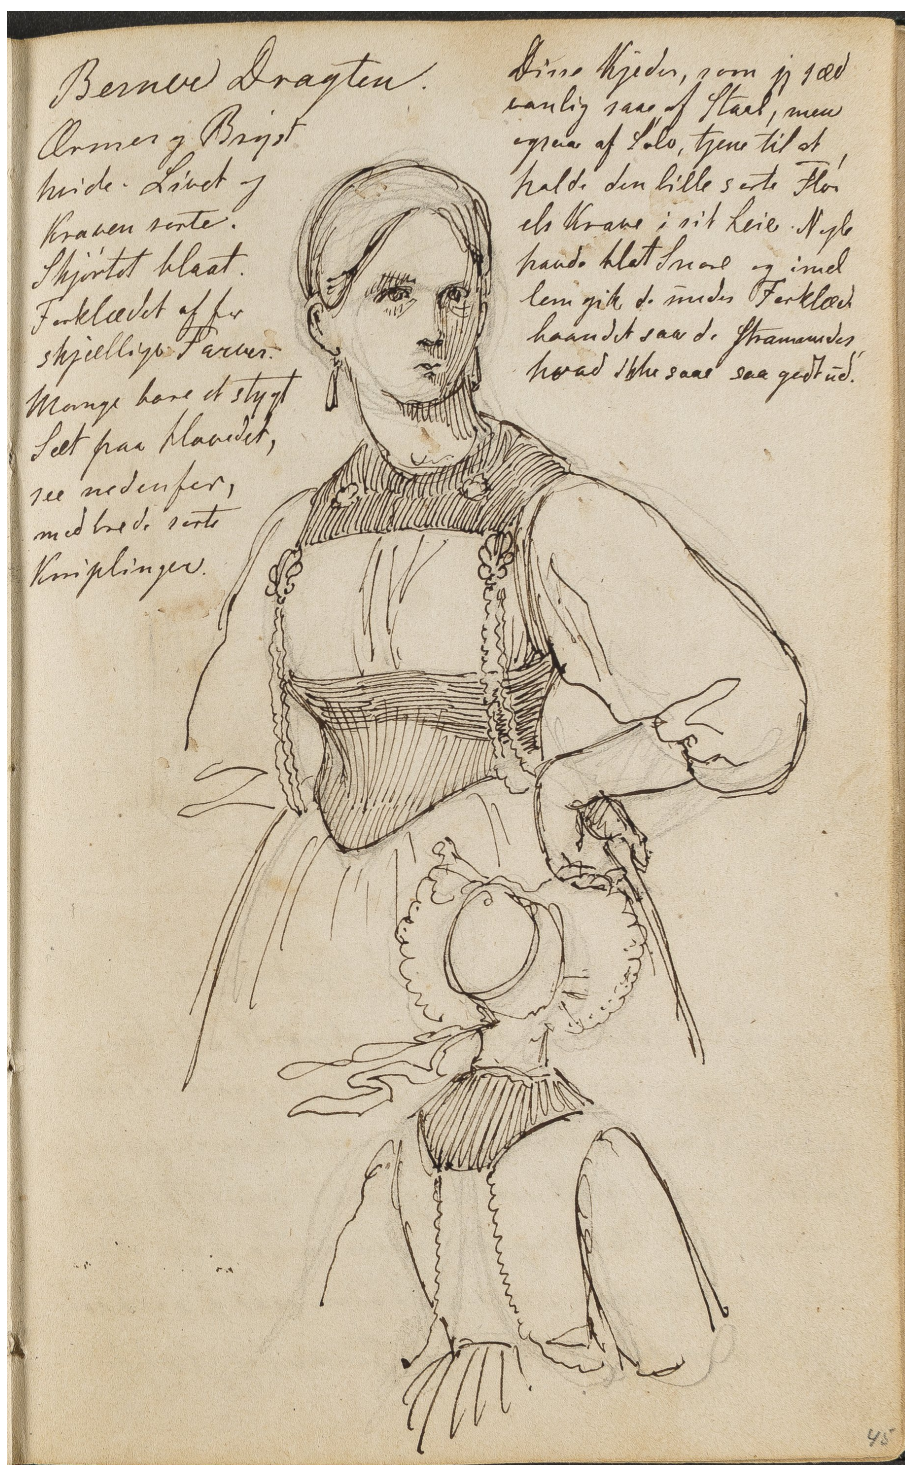 Berner Dragten.
Ærmer og Bryst
hvide. Livet og
Kraven sorte.
Skjörtet blaat.
Forklædet af for
skjellige Farver.
Mange have et stygt
Sæt paa Hovedet,
see nedenfor,
med brede sorte
Kniplinger.
Disse Kjeder, som jeg sæd
vanlig saae af Staal, men
ogsaa af Sölv, tjene til at
holde den lille sorte Flöi
els Krave i sit Leie. Nogle
havde blot Snore og imel
lem gik de under Forklæde
baandet saa de strammedes,
hvad ikke saae saa godt ud.
45